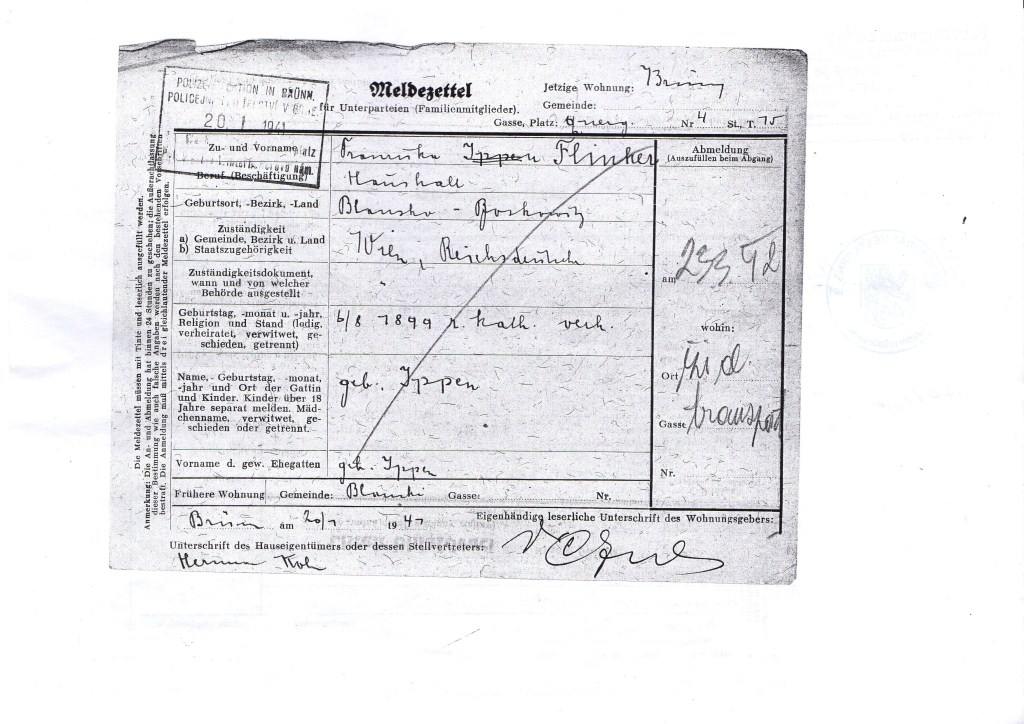 POLIZEIDIREKTION IN BRÜNN.
20 I 1941
Meldezettel
für Unterparteien (Familienmitglieder).
Jetzige Wohnung: Brünn
Gemeinde:
Gasse, Platz: Querg. Nr 4 St., T. 15
Zu- und Vorname
Franziska Ippen Flinker
Beruf (Beschäftigung)
Haushalt
Geburtsort, -Bezirk, -Land
Blansko - Boskowitz
Zuständigkeit
a) Gemeinde, Bezirk u. Land
b) Staatszugehörigkeit
Wien, Reichsdeutsche
Zuständigkeitsdokument,
wann und von welcher
Behörde ausgestellt
Geburtstag, -monat u. -jahr,
Religion und Stand (ledig,
verheiratet, verwitwet, ge-
schieden, getrennt)
6/8 1899 r. kath. verh.
Name,- Geburtstag, -monat,
-jahr und Ort der Gattin
und Kinder. Kinder über 18
Jahre separat melden. Mäd-
chenname, verwitwet, ge-
schieden oder getrennt.
geb. Ippen
Vorname d. gew. Ehegatten
geb. Ippen
Frühere Wohnung Gemeinde: Blansko Gasse: Nr.
Brünn am 20/1 1941
Eigenhändige leserliche Unterschrift des Wohnungsgebers:
Unterschrift des Hauseigentümers oder dessen Stellvertreters:
Herman
Abmeldung
(Auszufüllen beim Abgang)
am 29 3. 42
wohin:
Ort žid.
Gasse transport
Nr.
Die Meldezettel müssen mit Tinte und leserlich ausgefüllt werden.
Anmerkung: Die An- und Abmeldung hat binnen 24 Stunden zu geschehen; die Außerachtlassung
dieser Bestimmung wie auch falsche Angaben werden nach den bestehenden Vorschriften
bestraft. Die Anmeldung muß mittels drei gleichlautender Meldezettel erfolgen.